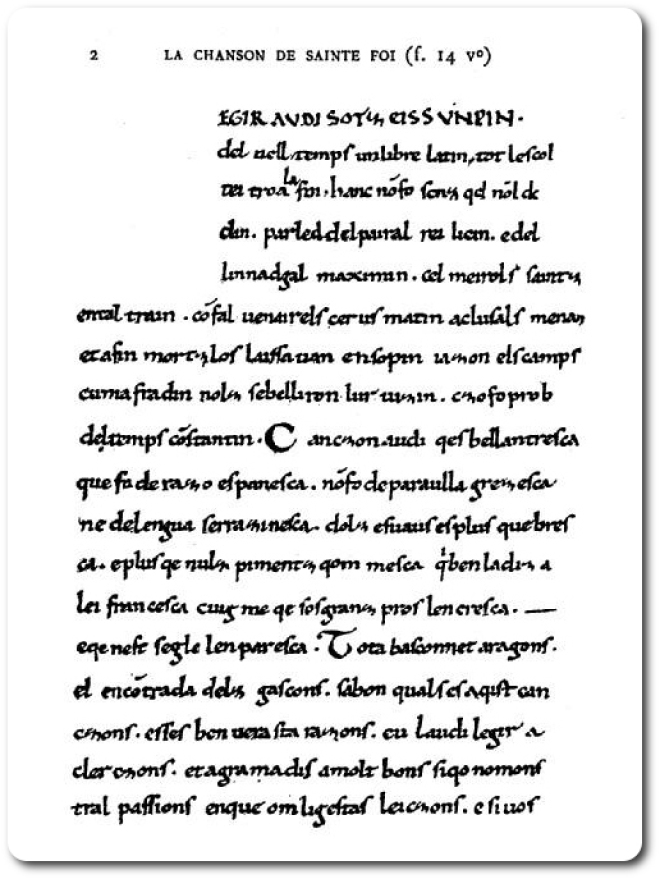 2 LA CHANSON DE SAINTE FOI (f. 14 vº)
EGIR AVDI SOTZ EISS VN PIN.
del uell temps un libre latin, tot lescol
tei troa la fin. hanc nõ fo senz qel nõl de
clin. parled del pairal rei licin. e del
linnadgal maximin. cel meirols saintz
ental train. cõ fal uenairels cerus matin aclusals menan
et afin mortz los laissauan ensopin iazon els camps
cuma fradin nolz sebelliron lur uizin. czo fo prob
del temps cõstantin. C anczon audi qes bellantresca
que fo de razo espanesca. nõ fo de paraulla grezesca
ne de lengua serrazinesca. dolz esuaus es plus que bres
ca. e plus qe nulz pimentz qom mesca qi ben ladiz a
lei francesca cuig me qe sos granz pros lencresca. —
e qenest segle lenparesca. T ota basconnet aragons.
el encõtrada delz gascons. sabon quals es aqist can
czons. esses ben uera sta razons. eu laudi legir a
clerczons. et agramadis amolt bons si qo nomons
tral passions enque om lig estas leiczons. e si uos